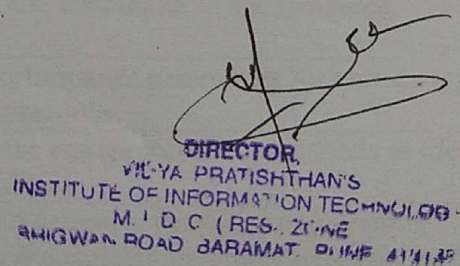 DIRECTOR,
VIL-YA PRATISHTHAN'S
INSTITUTE OF INFORMATION TECHNOLOG
M. I D C ( RES. ZONE
BHIGWAN ROAD BARAMAT PUNE